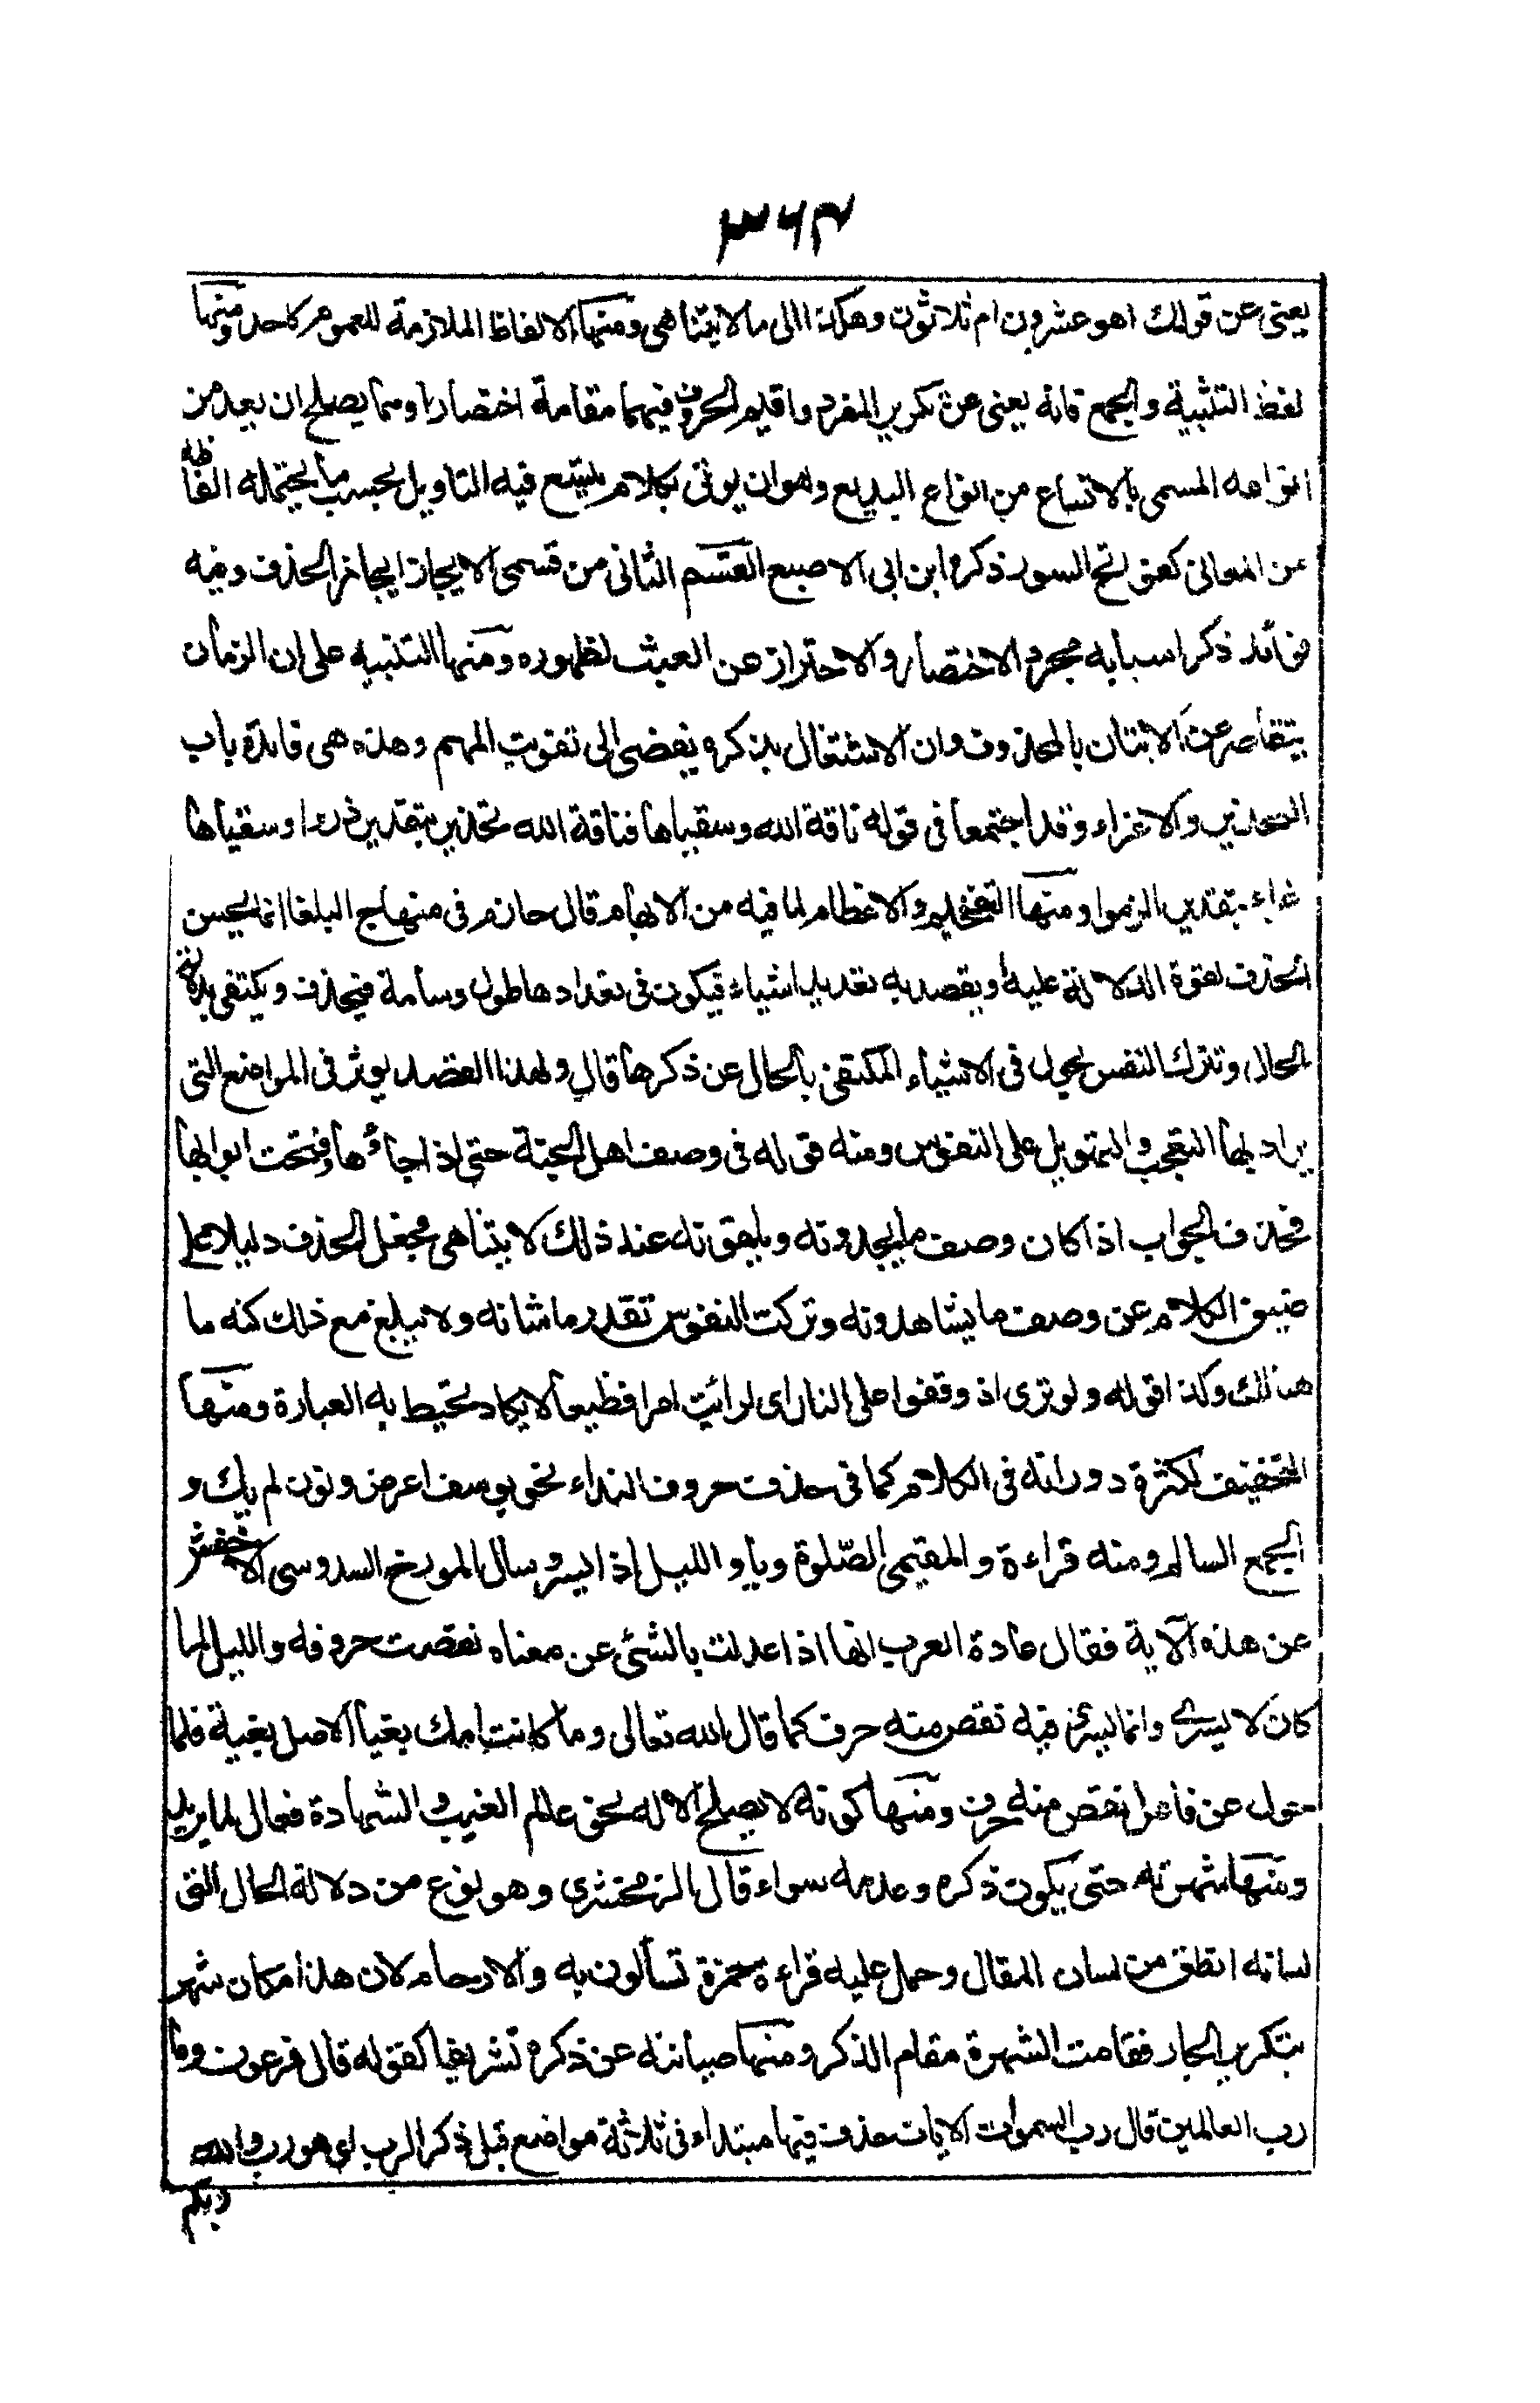 ٣٦٣
يغنى عن قولك اهو عشرون ام ثلاثون وهكذا الى ما لا يتناهى ومنها الالفاظ الملازمة للعموم كاحد ومنها
لفظ التثنية والجمع فانه يغنى عن تكرير المفرد واقيم الحروف فيهما مقامة اختصارا ومما يصلح ان يعد من
انواعه المسمى بالاتساع من انواع البديع وهو ان يوتى بكلام يتسع فيه التاويل بحسب ما يحتمله الفاظه
من المعانى كفواتح السور ذكره ابن ابى الاصبع القسم الثانى من قسمى الايجاز ايجاز الحذف وفيه
فوائد ذكر اسبابه مجرد الاختصار والاحتراز عن العبث لظهوره ومنها التنبيه على ان الزمان
يتقاصر عن الاتيان بالمحذوف وان الاشتغال بذكره يفضى الى تفويت المهم وهذه هى فايدة باب
التحذير والاغراء وقد اجتمعا فى قوله ناقة الله وسقياها فناقة الله تحذير بتقدير ذروا وسقياها
غراء بتقدير الزموا ومنها التفخيم والاعظام لما فيه من الابهام قال حازم فى منهاج البلغا انما يحسن
الحذف لقوة الدلالة عليه او يقصد به تعديد اشياء فيكون فى تعدادها طول وسامة فيحذف ويكتفى بدلالة
الحال وتترك النفس يجول فى الاشياء المكتفى بالحال عن ذكرها قال ولهذا القصد يوثر فى المواضع التى
يراد بها التعجب والتهويل على النفوس ومنه قوله فى وصف اهل الجنة حتى اذا جاؤها وفتحت ابوابها
فحذف الجواب اذا كان وصف ما يجدونه ويلقونه عند ذلك لا يتناهى فجعل الحذف دليلا على
ضيق الكلام عن وصف ما يشاهدونه وتركت النفوس تقدر ما شانه ولا يبلغ مع ذلك كنه ما
هنالك وكذا قوله ولو ترى اذ وقفوا على النار اى لرائيت امرا فظيعا لا يكاد تحيط به العبارة ومنها
التخفيف لكثرة دورانه فى الكلام كما فى حذف حروف النداء نحو يوسف اعرض ونون لم يك و
الجمع السالم ومنه قراءة والمقيمى الصّلوة ويا والليل اذا يسر وسال المورخ السدوسى الاخفش
عن هذه الآية فقال عادة العرب انها اذا عدلت بالشئى عن معناه نقصت حروفه والليل لما
كان لا يسرى وانما يسرى فيه نقص منه حرف كما قال الله تعالى وما كانت امك بغيا الاصل بغية فلما
حول عن فاعل نقص منه حرف ومنها كونه لا يصلح الا له نحو عالم الغيب والشهادة فعال لما يريد
ومنها شهرته حتى يكون ذكره وعدمه سواء قال الزمخشرى وهو نوع من دلالة الحال التى
لسانه انطق من لسان المقال وحمل عليه قراءة حمزة تسألون به والارحام لان هذا مكان شهر
بتكرير الجار فقامت الشهرة مقام الذكر ومنها صيانته عن ذكره تشريفا كقوله قال فرعون وما
رب العالمين قال رب السموات الايات حذف فيها مبتداء فى ثلاثة مواضع قبل ذكر الرب اى هو رب والله
ربكم